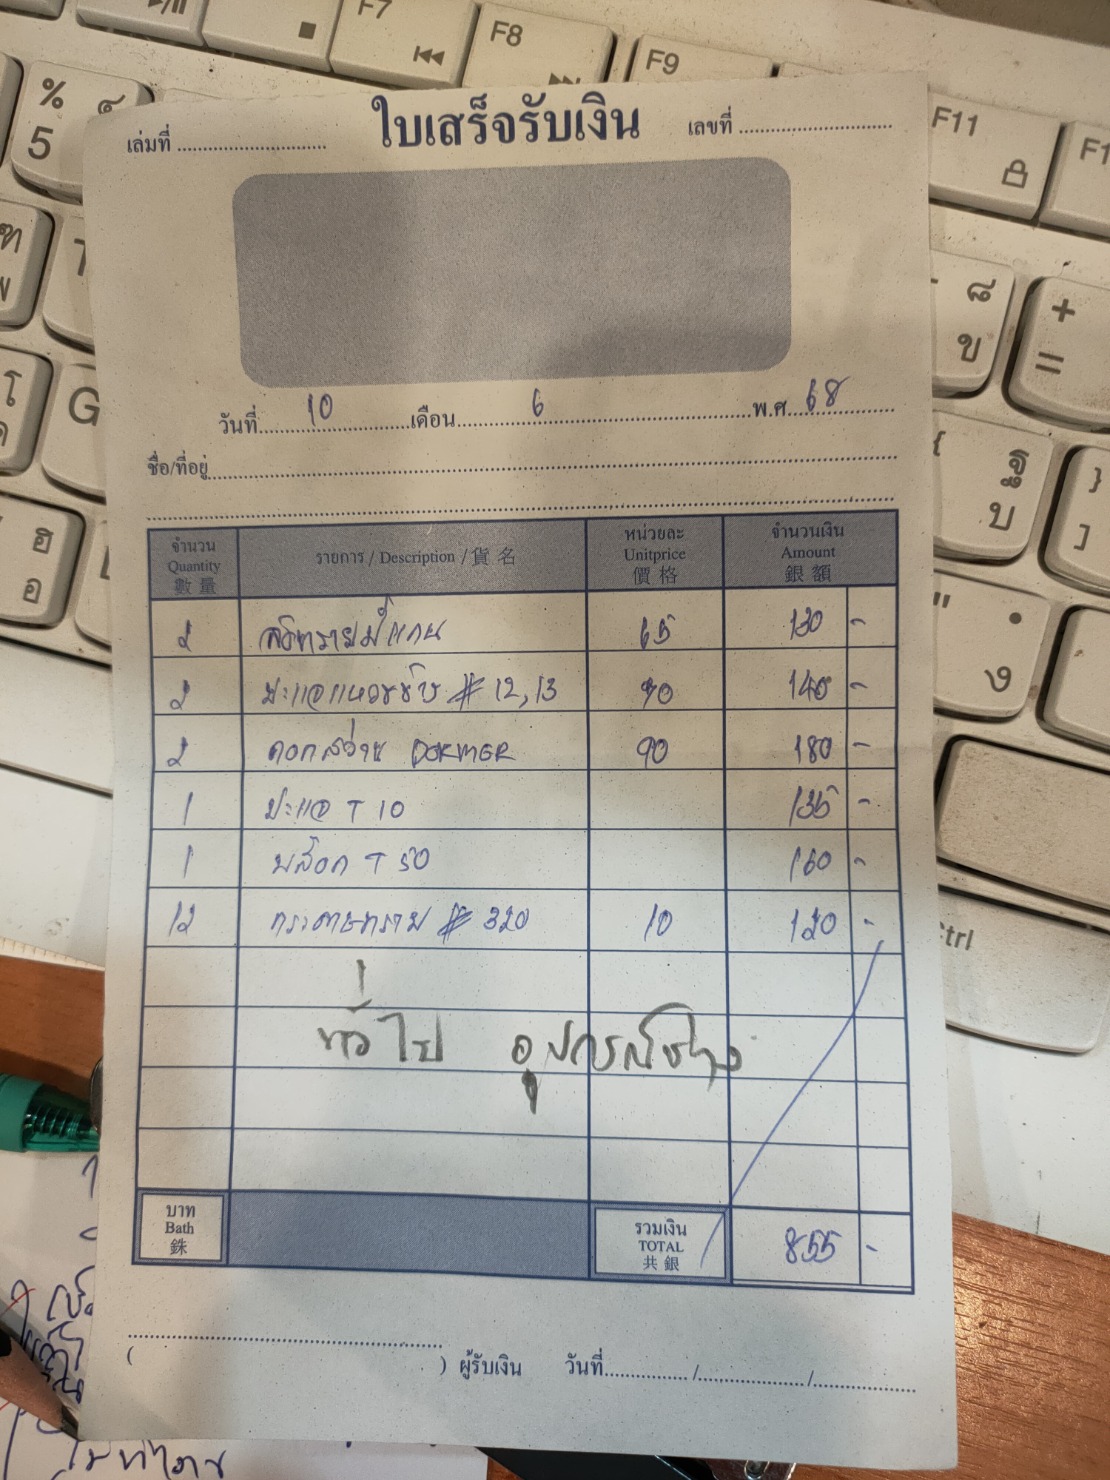 F7
F8
F9
F11
%
5
เล่มที่
ใบเสร็จรับเงิน
เลขที่
วันที่ 10 เดือน 6 พ.ศ. 68
ชื่อ/ที่อยู่
จำนวน
Quantity
數量
รายการ / Description / 貨名
หน่วยละ
Unitprice
價格
จำนวนเงิน
Amount
銀額
2 65 130 -
2 ประแจแหวนข้าง # 12,13 70 140 -
2 ดอกสว่าน DORMER 90 180 -
1 ประแจ T 10 135 -
1 บล็อก T 50 160 -
12 กระดาษทราย # 320 10 120 -
ทั่วไป อุปกรณ์ช่าง
บาท
Bath
銖
รวมเงิน
TOTAL
共銀
855 -
( ) ผู้รับเงิน วันที่ / /
G
+
=
ฐ
บ
ฮ
อ
ง
Ctrl